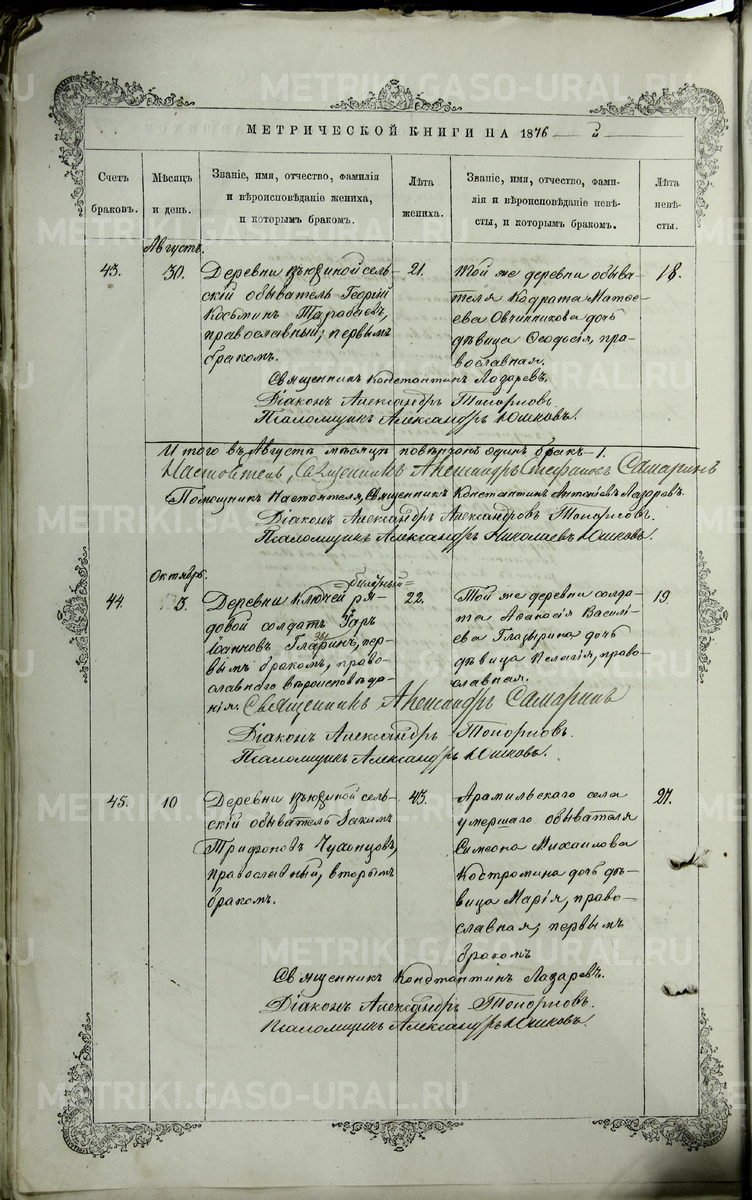 МЕТРИЧЕСКОЙ КНИГИ НА 1876
Счетъ браковъ.
Мѣсяцъ и день.
Званіе, имя, отчество, фамилія
и вѣроисповѣданіе жениха,
и которымъ бракомъ.
Лѣта
жениха.
Званіе, имя, отчество, фами-
лія и вѣроисповѣданіе невѣ-
сты, и которымъ бракомъ.
Лѣта
невѣ-
сты.
Августъ.
43.
30.
Деревни сель-
скій обыватель Георгій
Косьминъ Тарабаевъ,
православный; первымъ
бракомъ.
21.
Той же деревни обыва-
теля Кодрата Матѳе-
ева Овчинникова дочь
дѣвица Ѳеодосія, пра-
вославная.
18.
Священникъ Константинъ Лазаревъ.
Діаконъ Александръ Топорковъ.
Псаломщикъ Александръ Юшковъ.
Итого въ Августѣ мѣсяцѣ повѣнчанъ одинъ бракъ - 1.
Настоятель, Священникъ Александръ Стефановъ Самаринъ
Помощникъ Настоятеля, Священникъ Константинъ Антоніевъ Лазаревъ.
Діаконъ Александръ Александровъ Топорковъ.
Псаломщикъ Александръ Николаевъ Юшковъ.
Октябрь.
44.
3.
=билетный=
Деревни Ключей ря-
довой солдатъ
Іоанновъ пер-
вымъ бракомъ, право-
славнаго вѣроисповѣда-
нія.
22.
Той же деревни солда-
та Аѳанасія Василі-
ева Глазырина дочь
дѣвица Пелагія, право-
славная.
19.
Священникъ Александръ Самаринъ
Діаконъ Александръ Топорковъ.
Псаломщикъ Александръ Юшковъ.
45.
10
Деревни сель-
скій обыватель
Трифоновъ
православный, вторымъ
бракомъ.
43.
Арамильскаго села
умершаго обывателя
Симеона Михаилова
Костромина дочь дѣ-
вица Марія, право-
славная; первымъ
бракомъ
27.
Священникъ Константинъ Лазаревъ.
Діаконъ Александръ Топорковъ.
Псаломщикъ Александръ Юшковъ.
METRIKI.GASO-URAL.RU